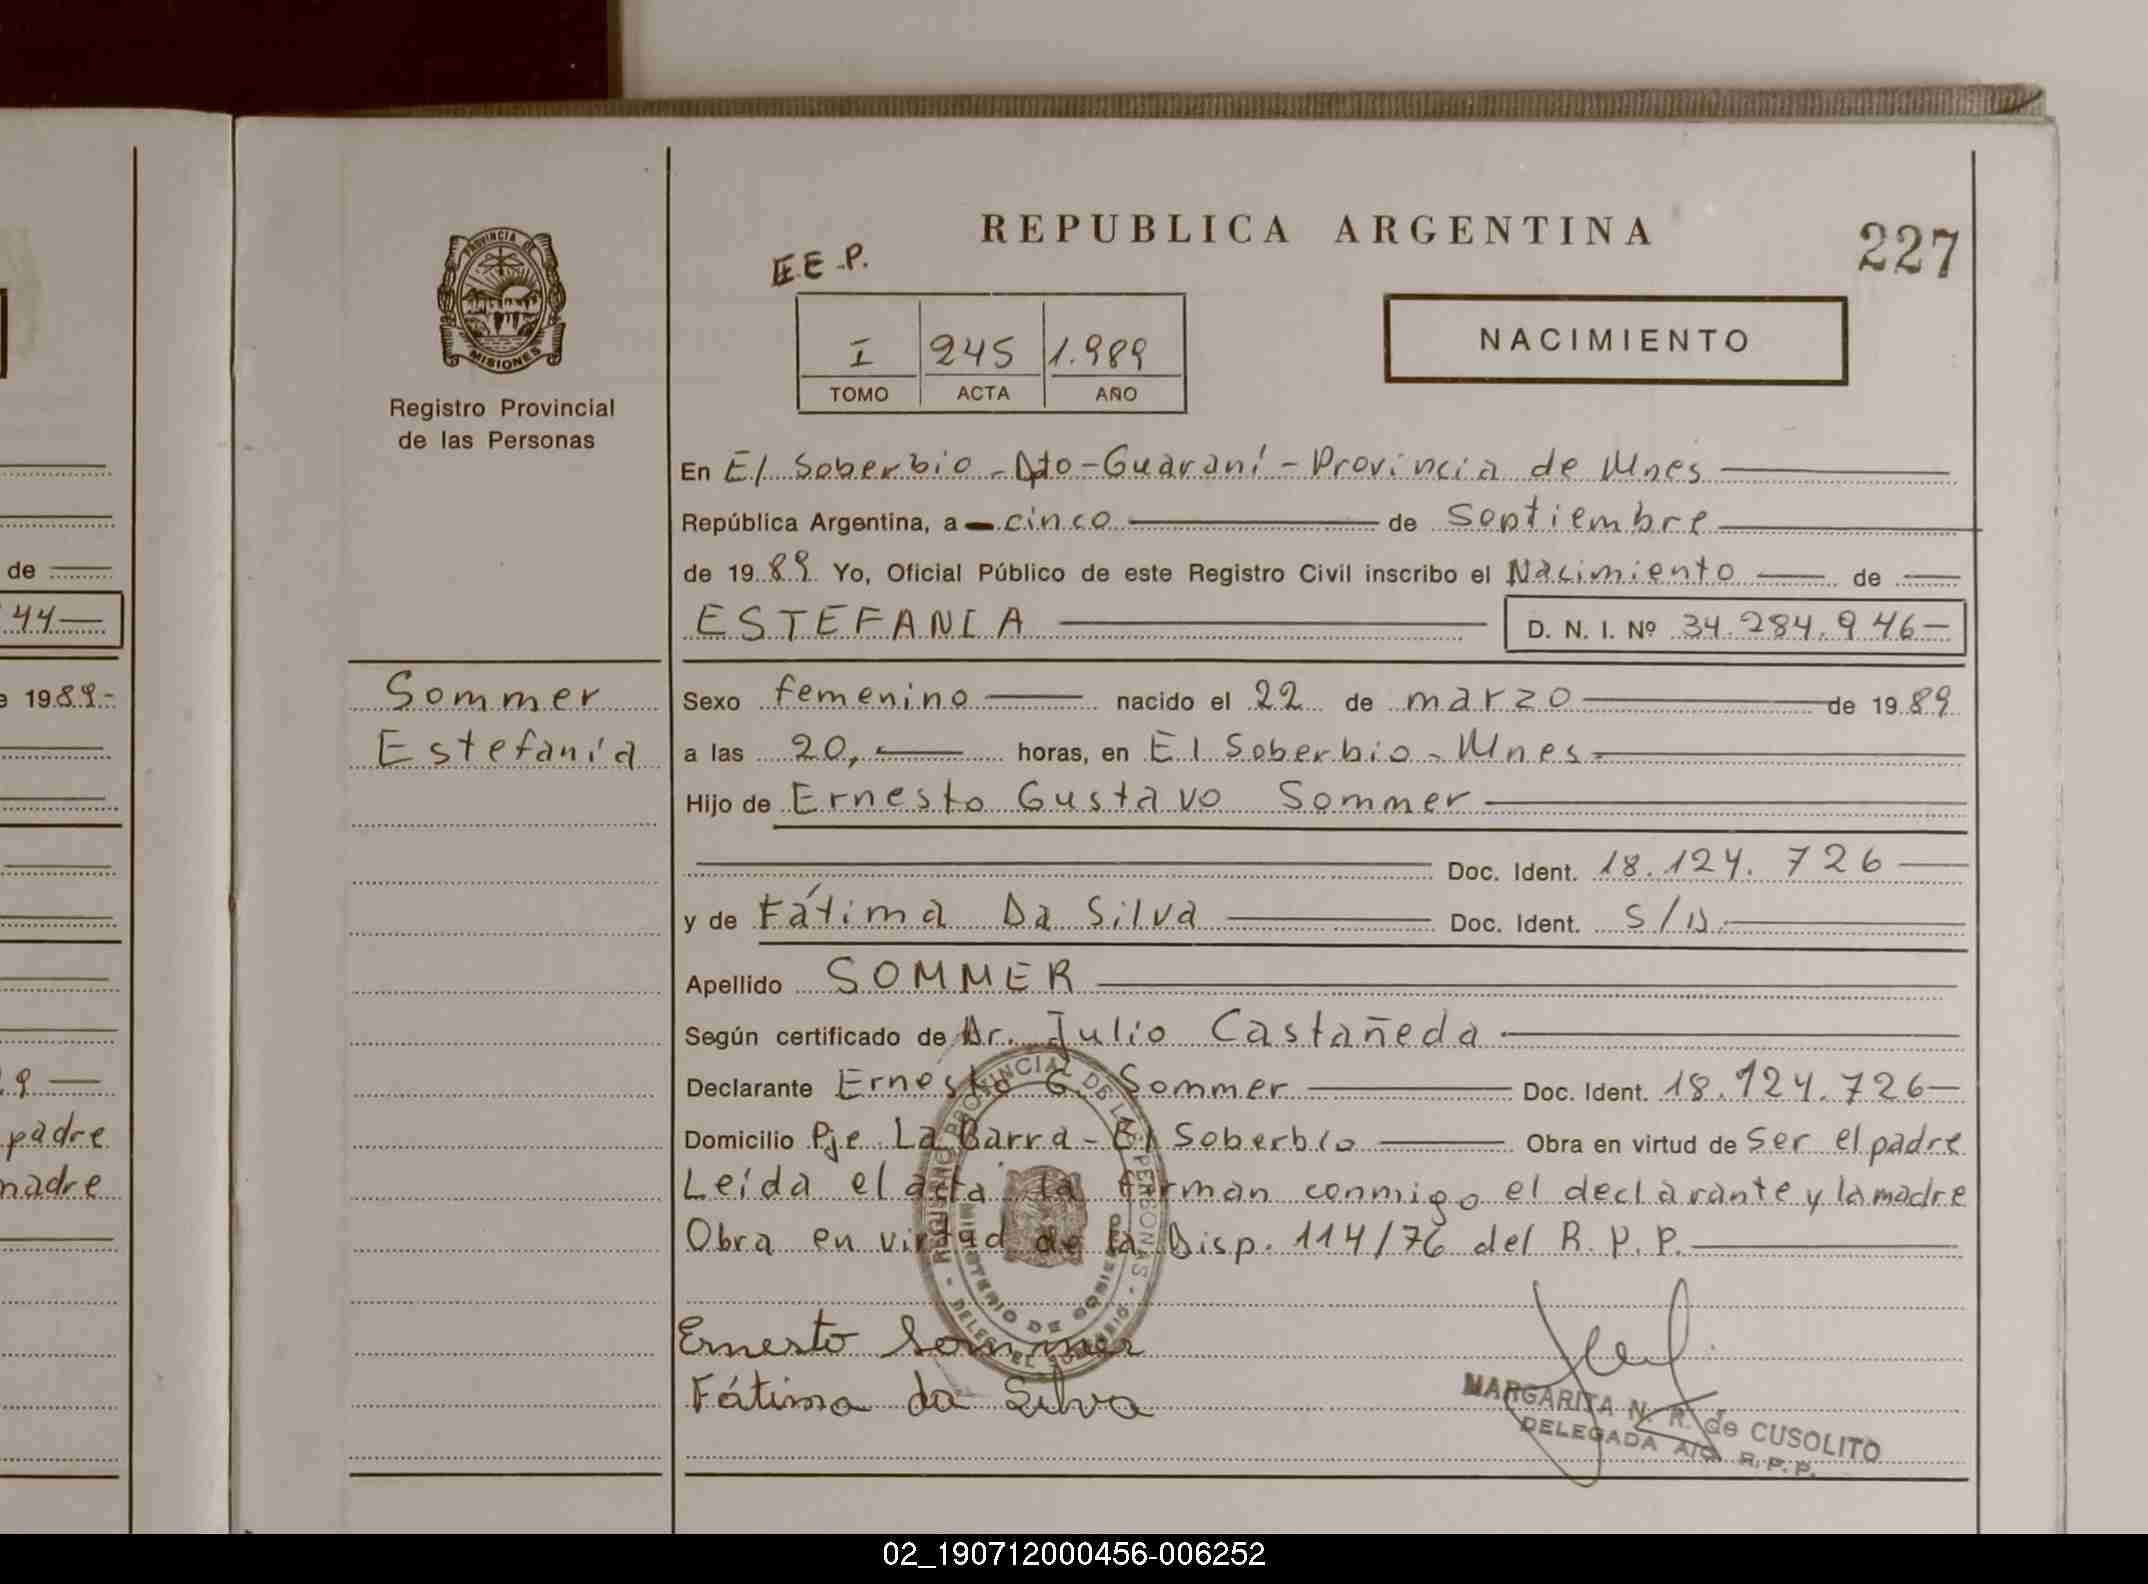 REPUBLICA ARGENTINA
227
E.E.P.
PROVINCIA DE
MISIONES
Registro Provincial
de las Personas
I 245 1.989
TOMO ACTA AÑO
NACIMIENTO
En El Soberbio - Dto - Guaraní - Provincia de Mnes
República Argentina, a cinco de Septiembre
de 1989 Yo, Oficial Público de este Registro Civil inscribo el Nacimiento de
ESTEFANIA D. N. I. Nº 34.284.946
Sommer
Estefanía
Sexo femenino nacido el 22 de marzo de 1989
a las 20, horas, en El Soberbio - Mnes
Hijo de Ernesto Gustavo Sommer
Doc. Ident. 18.124.726
y de Fátima Da Silva Doc. Ident. S/D.
Apellido SOMMER
Según certificado de Dr. Julio Castañeda
Declarante Ernesto G. Sommer Doc. Ident. 18.124.726
Domicilio Pje La Barra - El Soberbio Obra en virtud de Ser el padre
Leída el acta la firman conmigo el declarante y la madre
Obra en virtud de la Disp. 114/76 del R. P. P.
Ernesto Sommer
Fátima da Silva
MARGARITA N. R. de CUSOLITO
DELEGADA A/C R.P.P.
de
44
1989
padre
madre
02_190712000456-006252